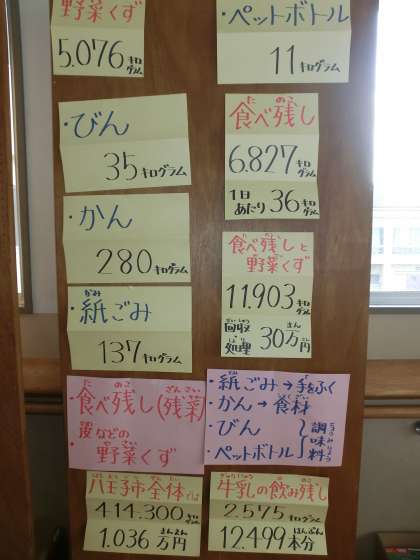 野菜くず
5.076キログラム
・ペットボトル
11キログラム
・びん
35キログラム
食べ残し
6.827キログラム
1日あたり36キログラム
・かん
280キログラム
食べ残しと
野菜くず
11.903キログラム
回収・処理 30万円
・紙ごみ
137キログラム
・食べ残し(残菜)
・皮などの
野菜くず
・紙ごみ→手をふく
・かん→食材
・びん
・ペットボトル
調味料
八王子市全体では
414.300キログラム
1.036万円
牛乳の飲み残し
2.575キログラム
12.499本分